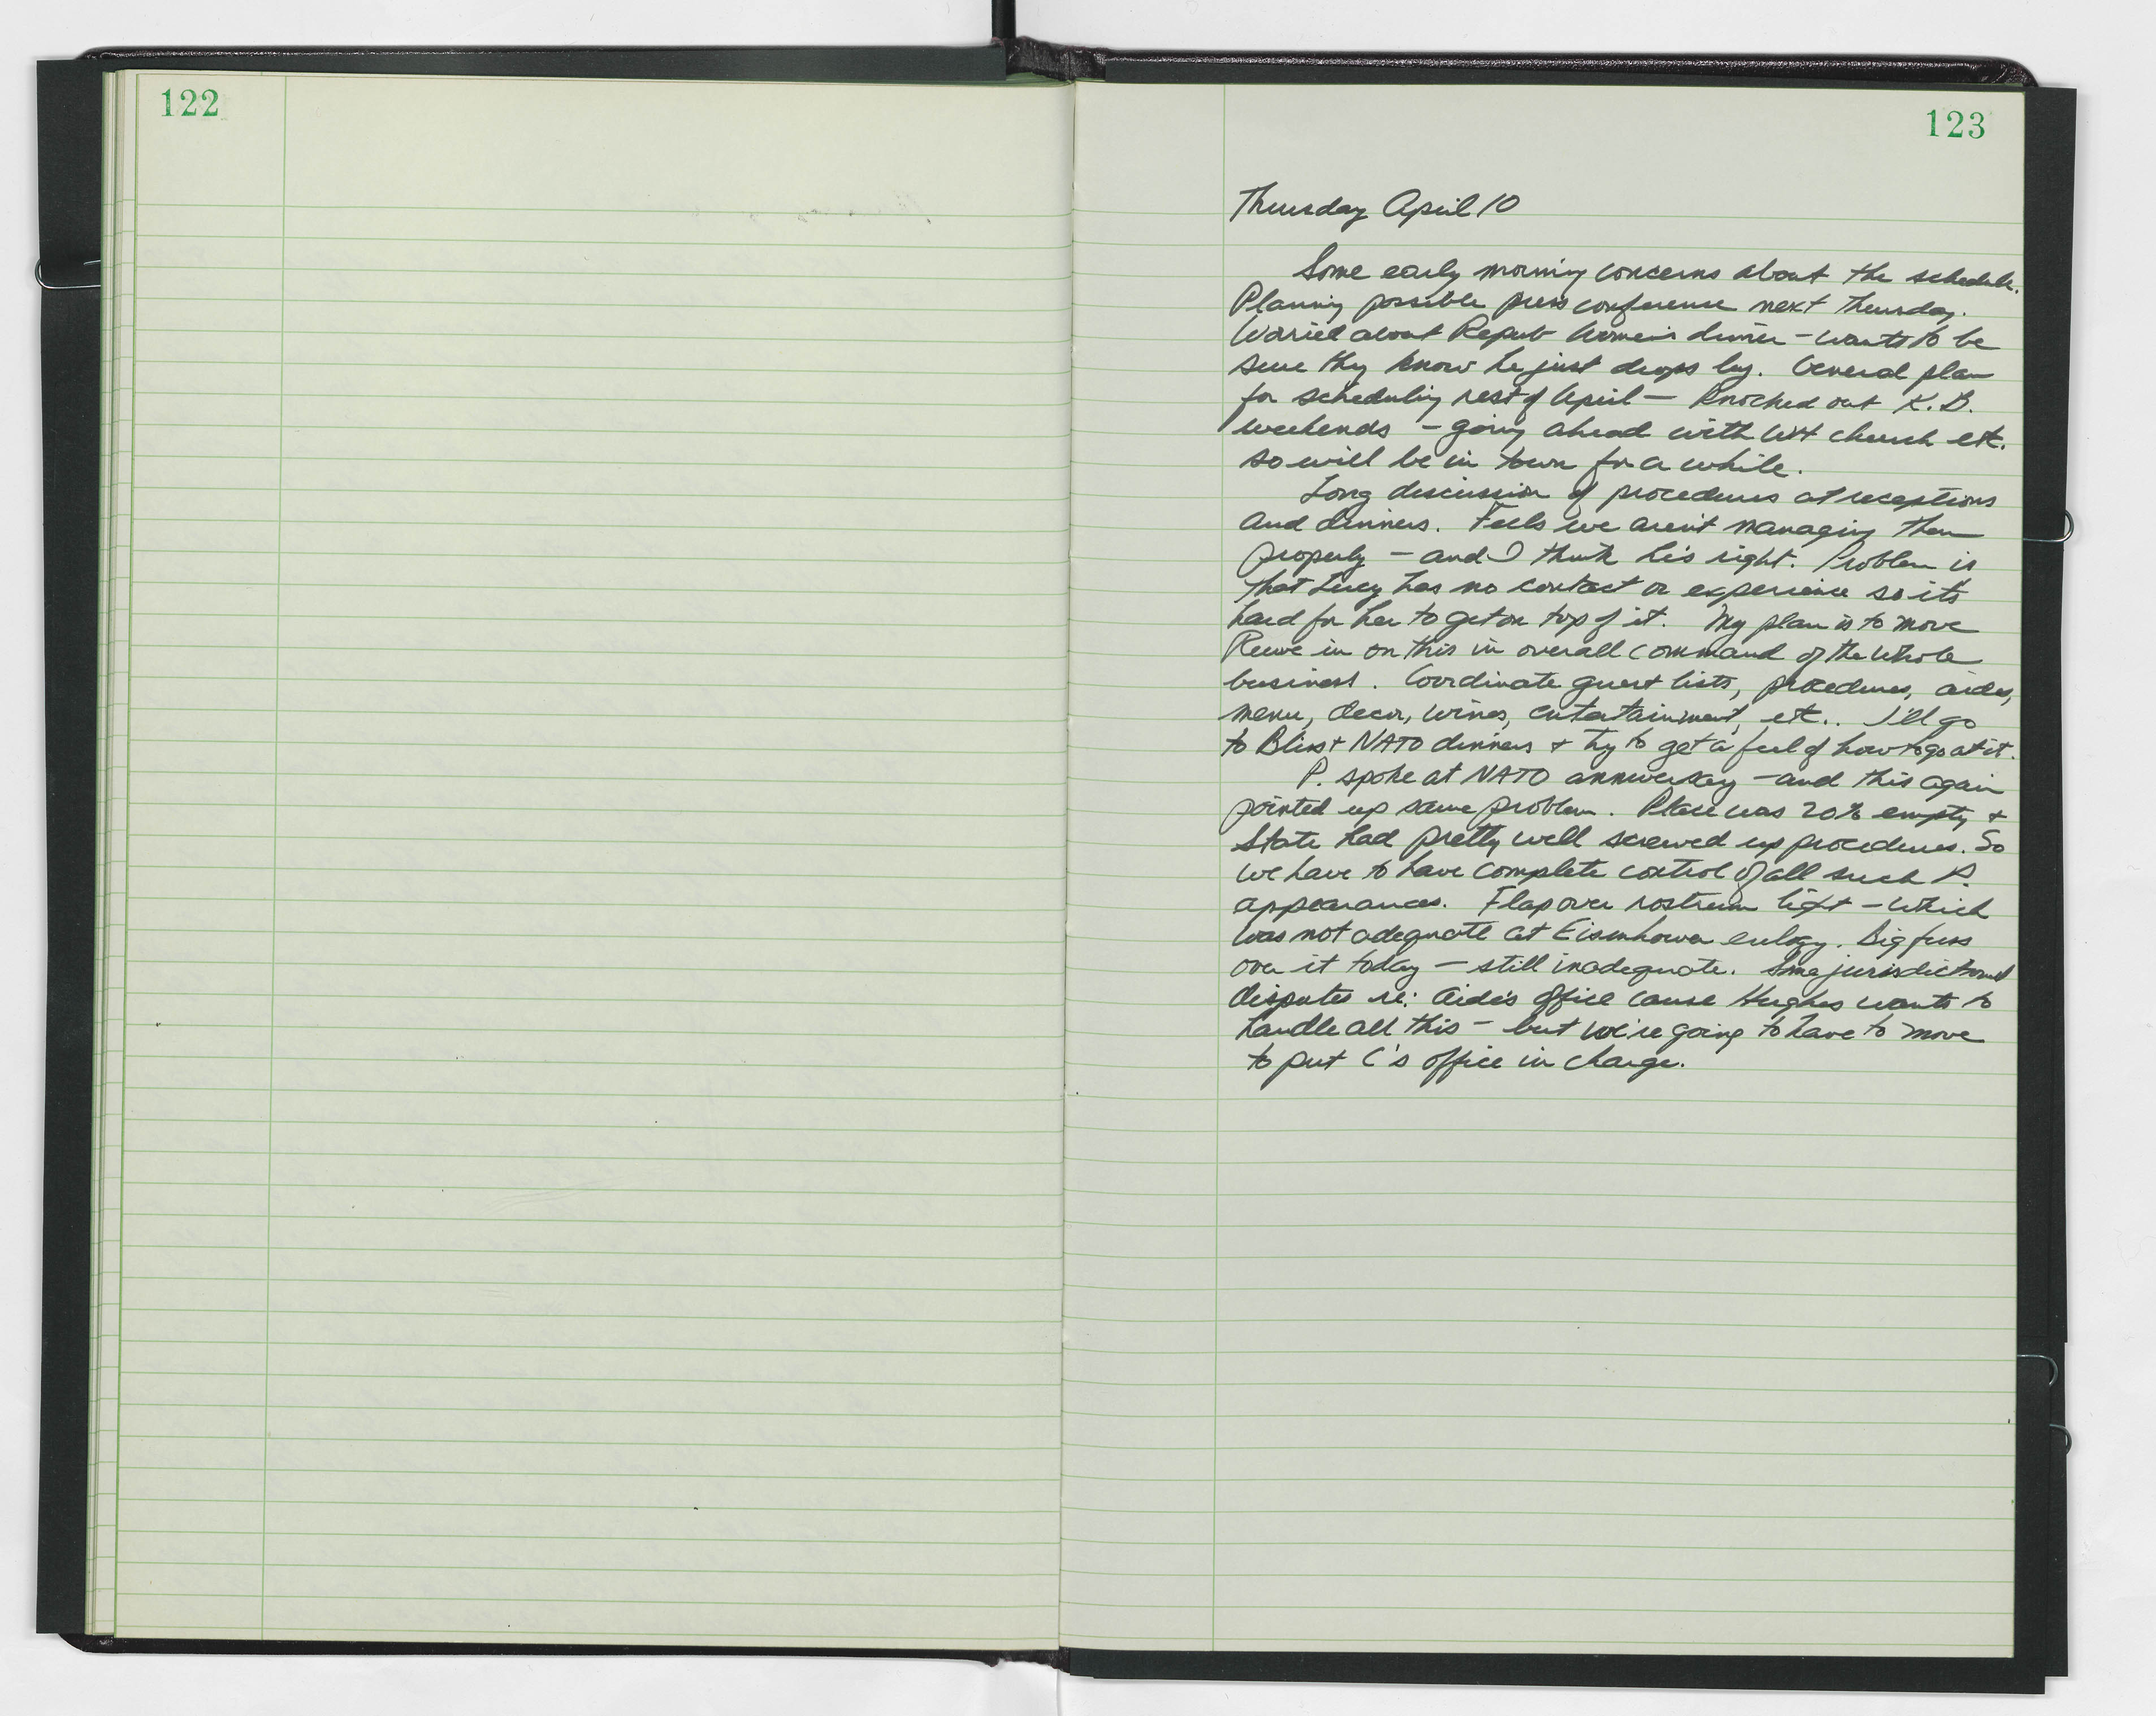 122
123
Thursday April 10
Some early morning concerns about the schedule.
Planning possible press conference next Thursday.
Worried about Repub Women's dinner - wants to be
sure they know he just drops by. General plan
for scheduling rest of April — knocked out K.B.
weekends - going ahead with WH church etc.
so will be in town for a while.
Long discussion of procedures at receptions
and dinners. Feels we aren't managing them
properly - and I think he's right. Problem is
that Lucy has no contact or experience so its
hard for her to get on top of it. My plan is to move
Reeve in on this in overall command of the whole
business. Coordinate guest lists, procedures, aides,
menu, decor, wines, entertainment, etc.. I'll go
to Bliss + NATO dinners + try to get a feel of how to go at it.
P. spoke at NATO anniversary - and this again
pointed up same problem. Place was 20% empty +
State had pretty well screwed up procedures. So
we have to have complete control of all such P.
appearances. Flap over rostrum light - which
was not adequate at Eisenhower eulogy. Big fuss
over it today - still inadequate. Some jurisdictional
disputes re: Aide's office cause Hughes wants to
handle all this - but we're going to have to move
to put C's office in charge.